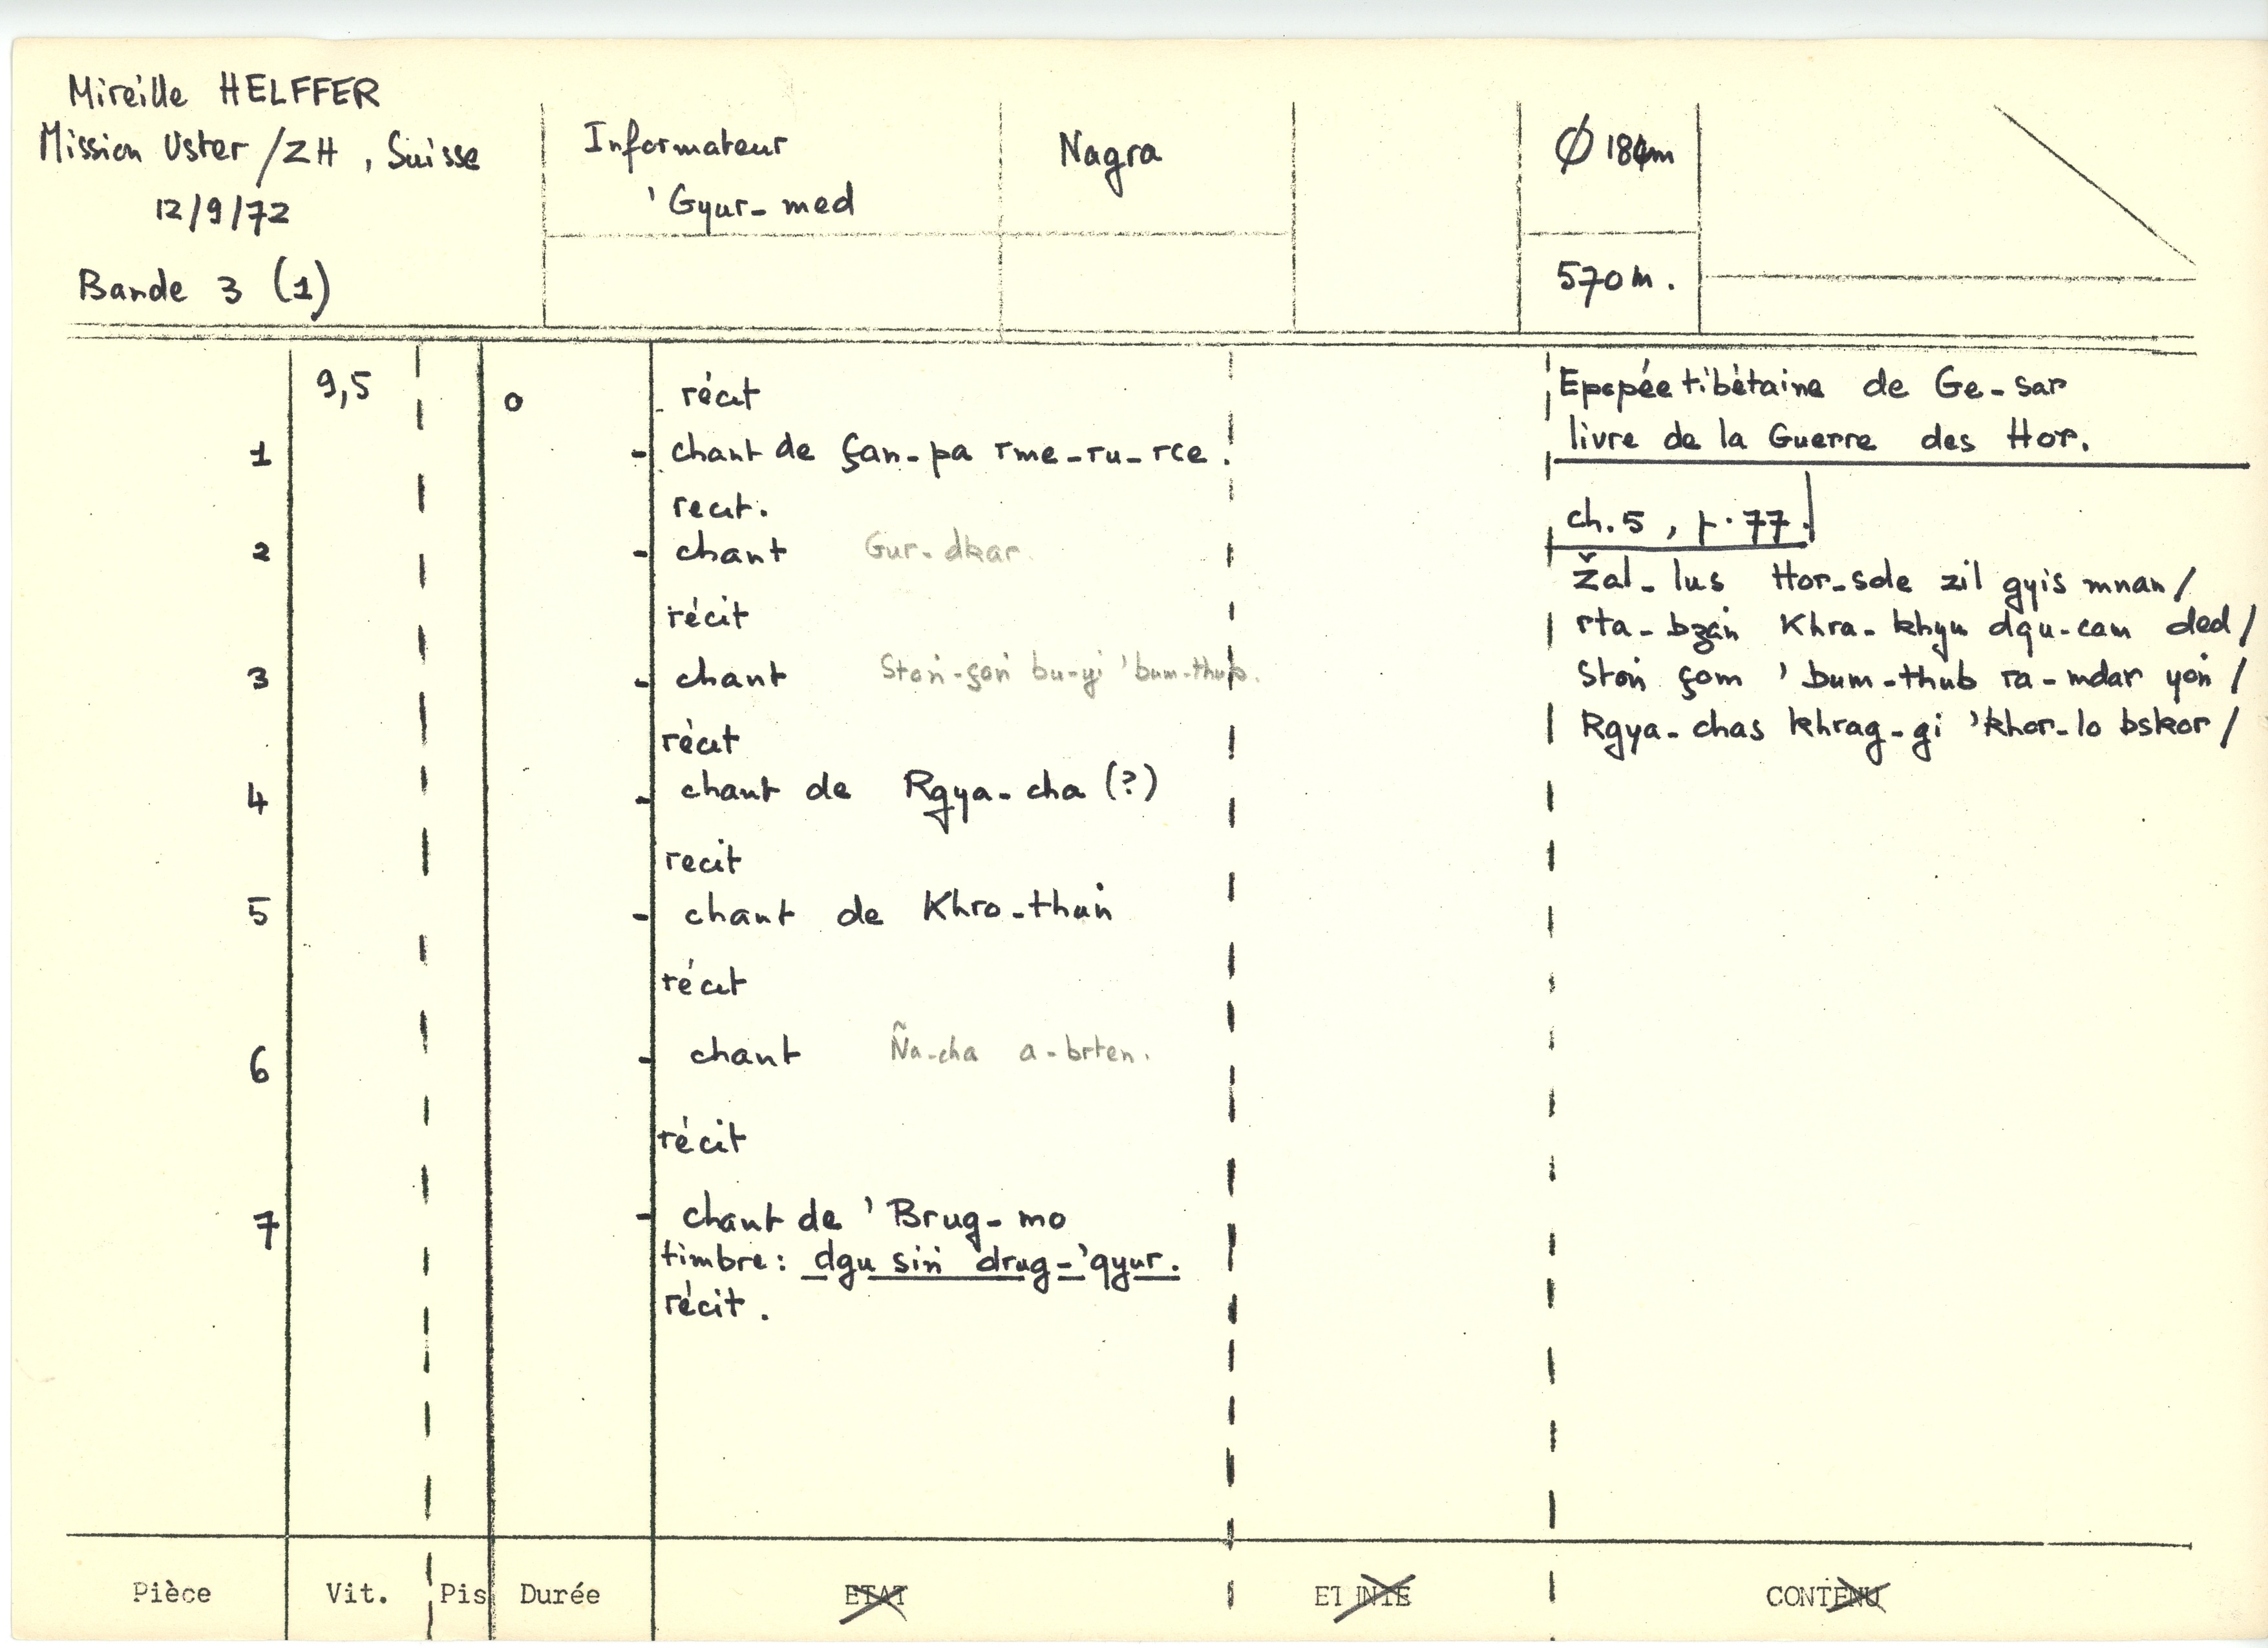 Mireille HELFFER
Mission Uster /ZH , Suisse
12/9/72
Bande 3 (1)
Informateur
'Gyur-med
Nagra
Ø 18cm
570 m.
9,5
o
récit
1 - chant de Šan-pa rme-ru-rce.
recit.
2 - chant Gur-dkar
récit
3 - chant Stoṅ-šoṅ bu-yi 'bum-thub.
récit
4 - chant de Rgya-cha (?)
recit
5 - chant de Khro-thuṅ
récit
6 - chant Ña-cha a-brten.
récit
7 - chant de 'Brug-mo
timbre : dgu siṅ drug-'gyur.
récit.
Epopée tibétaine de Ge-sar
livre de la Guerre des Hor.
ch. 5 , p. 77.
Žal-lus Hor-sde zil gyis mnan /
rta-bzaṅ Khra-khyu dgu-cam ded /
Stoṅ šom 'bum-thub ra-mdar yoṅ /
Rgya-chas khrag-gi 'khor-lo bskor /
Pièce
Vit.
Pis
Durée
ETAT
CONTENU